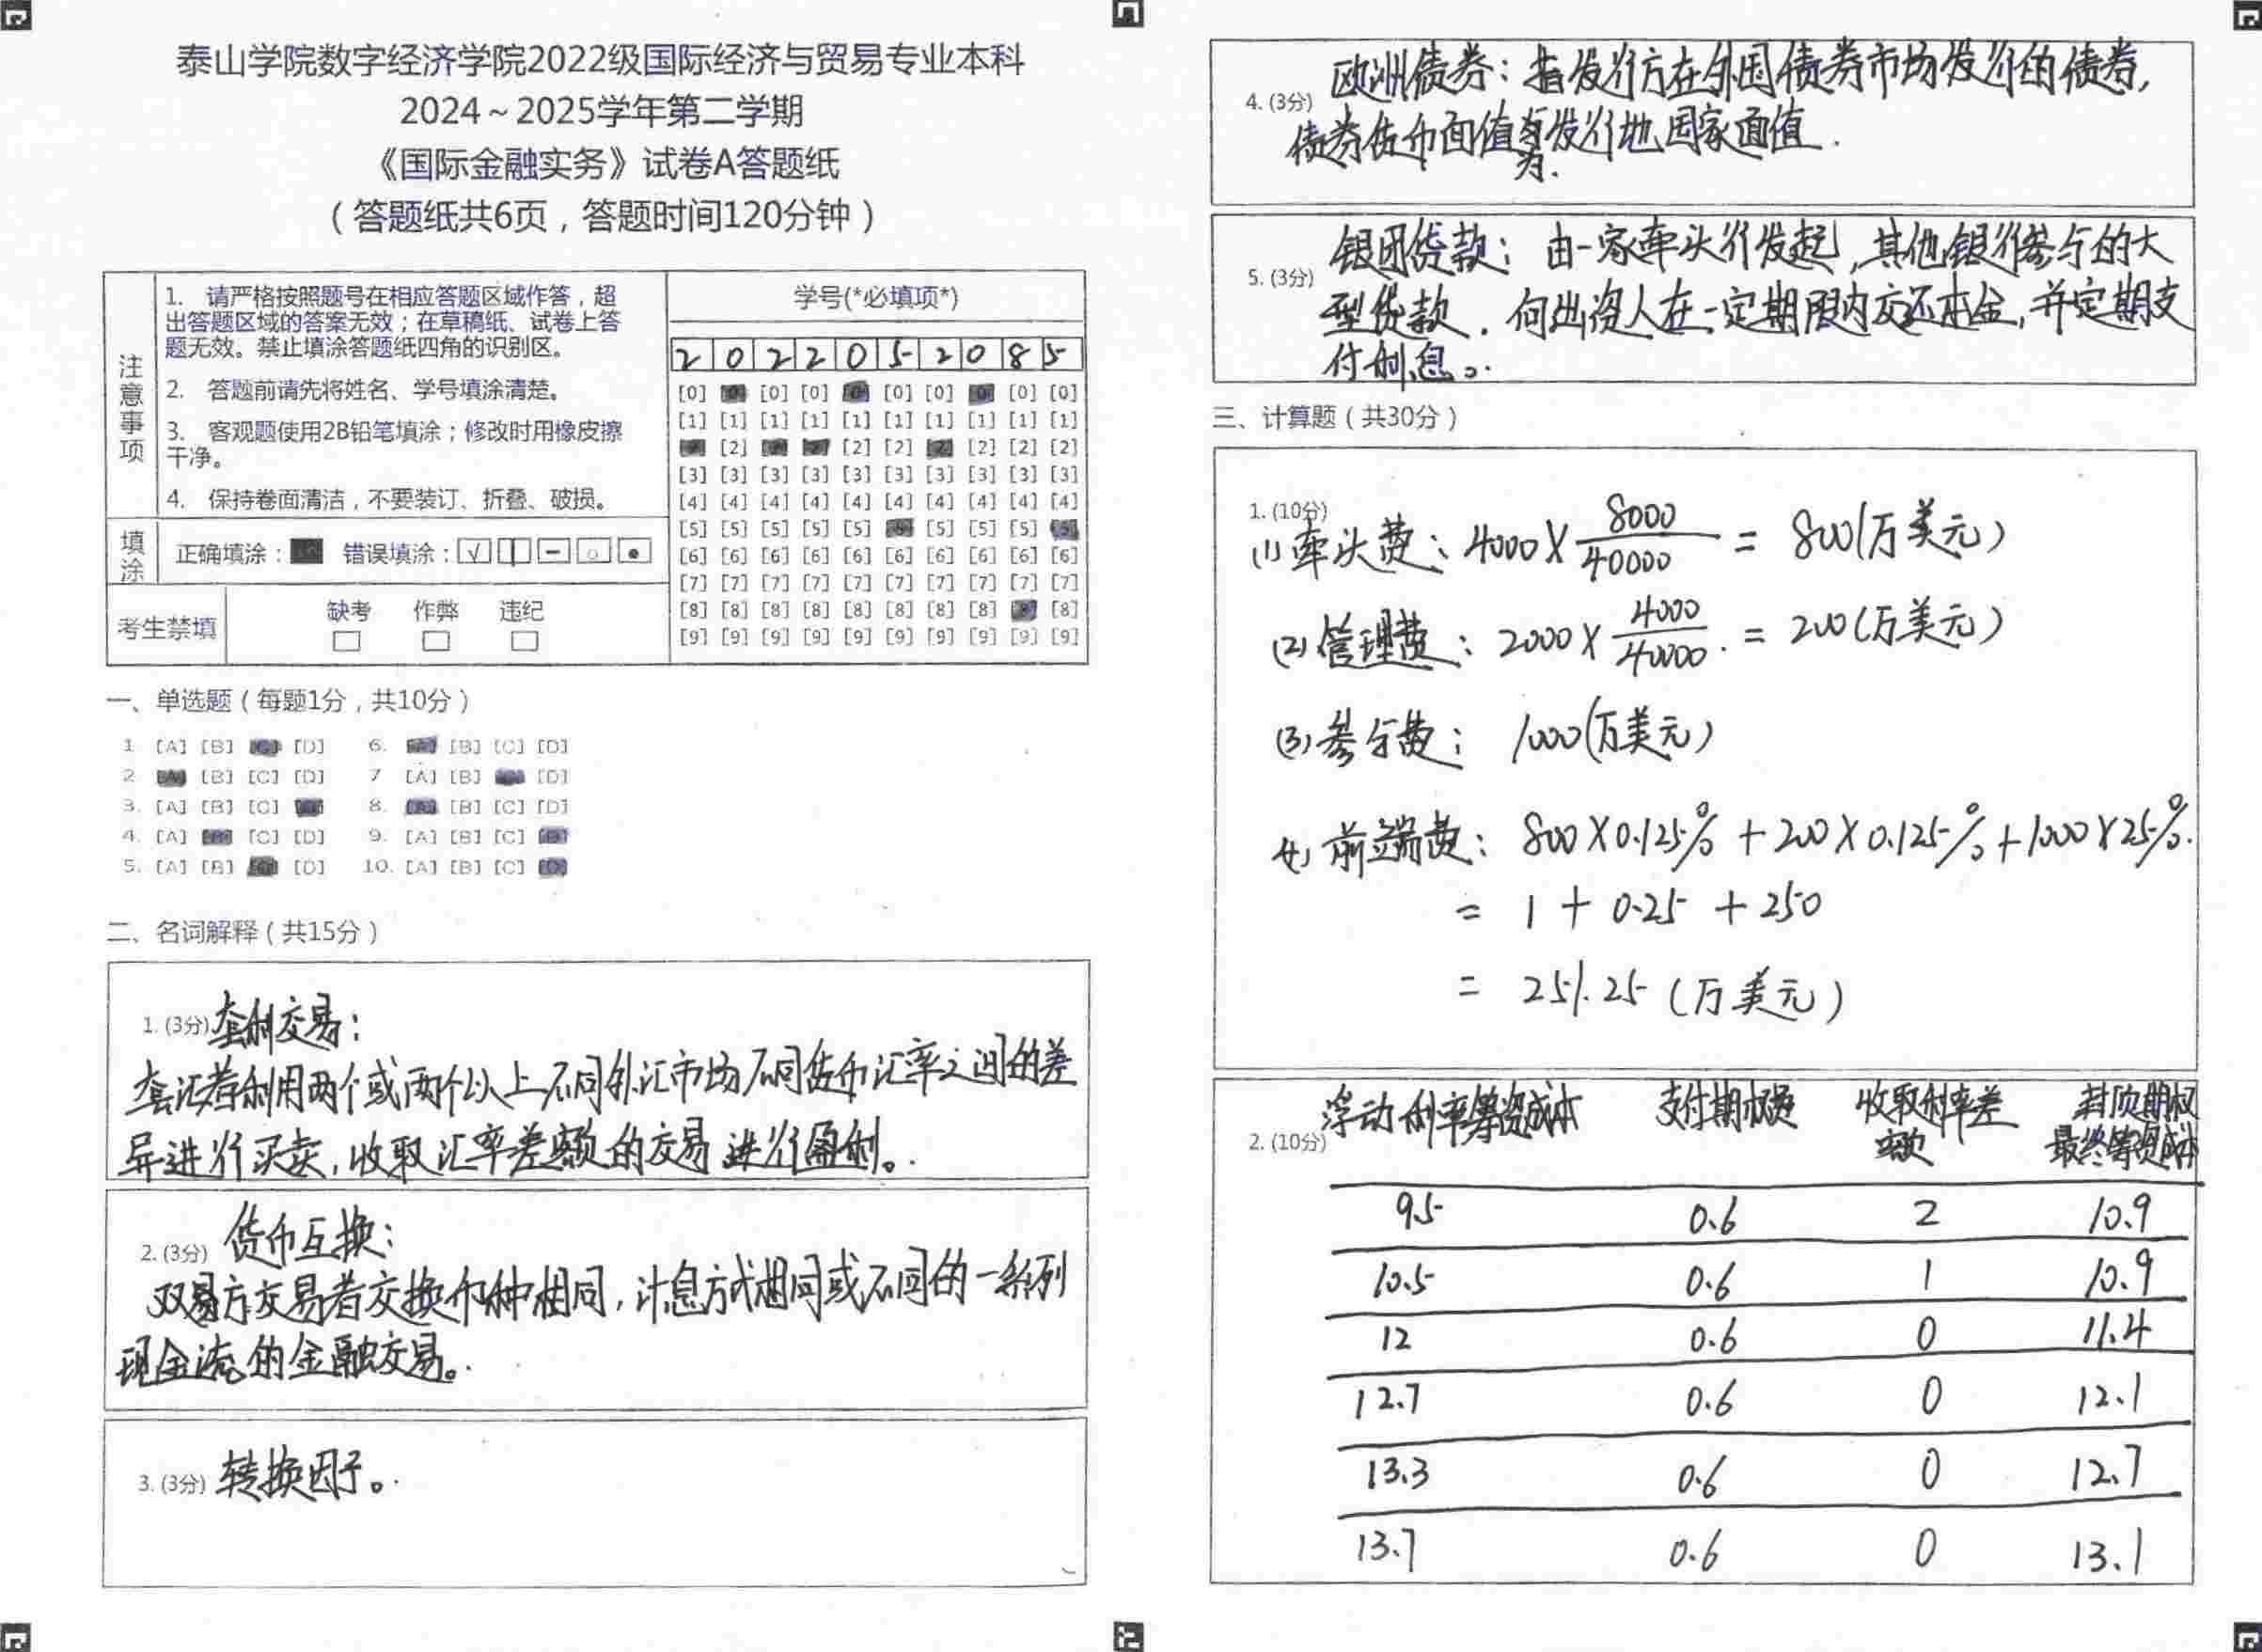 泰山学院数字经济学院2022级国际经济与贸易专业本科
2024～2025学年第二学期
《国际金融实务》试卷A答题纸
（答题纸共6页，答题时间120分钟）
注意事项
1. 请严格按照题号在相应答题区域作答，超
出答题区域的答案无效；在草稿纸、试卷上答
题无效。禁止填涂答题纸四角的识别区。
2. 答题前请先将姓名、学号填涂清楚。
3. 客观题使用2B铅笔填涂；修改时用橡皮擦
干净。
4. 保持卷面清洁，不要装订、折叠、破损。
填涂
正确填涂： 错误填涂：
考生禁填
缺考 作弊 违纪
学号(*必填项*)
2 0 2 2 0 5 2 0 8 5
[0] [0] [0] [0] [0] [0] [0] [0] [0] [0]
[1] [1] [1] [1] [1] [1] [1] [1] [1] [1]
[2] [2] [2] [2] [2] [2] [2] [2] [2] [2]
[3] [3] [3] [3] [3] [3] [3] [3] [3] [3]
[4] [4] [4] [4] [4] [4] [4] [4] [4] [4]
[5] [5] [5] [5] [5] [5] [5] [5] [5] [5]
[6] [6] [6] [6] [6] [6] [6] [6] [6] [6]
[7] [7] [7] [7] [7] [7] [7] [7] [7] [7]
[8] [8] [8] [8] [8] [8] [8] [8] [8] [8]
[9] [9] [9] [9] [9] [9] [9] [9] [9] [9]
一、单选题（每题1分，共10分）
1 [A] [B] [C] [D] 6. [A] [B] [C] [D]
2 [A] [B] [C] [D] 7 [A] [B] [C] [D]
3. [A] [B] [C] [D] 8. [A] [B] [C] [D]
4. [A] [B] [C] [D] 9. [A] [B] [C] [D]
5. [A] [B] [C] [D] 10. [A] [B] [C] [D]
二、名词解释（共15分）
1. (3分) 套利交易：
套汇者利用两个或两个以上不同外汇市场不同货币汇率之间的差
异进行买卖，收取汇率差额的交易进行盈利。
2. (3分) 货币互换：
双方交易者交换币种相同，计息方式相同或不同的一系列
现金流的金融交易。
3. (3分) 转换因子。
4. (3分) 欧洲债券：指发行方在外国债券市场发行的债券，
债券货币面值为发行地国家面值.
5. (3分) 银团贷款：由一家牵头行发起，其他银行参与的大
型贷款．向出资人在一定期限内交还本金，并定期支
付利息。
三、计算题（共30分）
1. (10分)
(1) 牵头费：4000×8000/40000 = 800(万美元)
(2) 管理费：2000×4000/40000 = 200(万美元)
(3) 参与费：1000(万美元)
(4) 前端费：800×0.125% + 200×0.125% + 1000×25%.
= 1 + 0.25 + 250
= 251.25 (万美元)
2. (10分) 浮动利率筹资成本 支付期权费 收取利率差额 封顶期权最终筹资成本
9.5 0.6 2 10.9
10.5 0.6 1 10.9
12 0.6 0 11.4
12.7 0.6 0 12.1
13.3 0.6 0 12.7
13.7 0.6 0 13.1